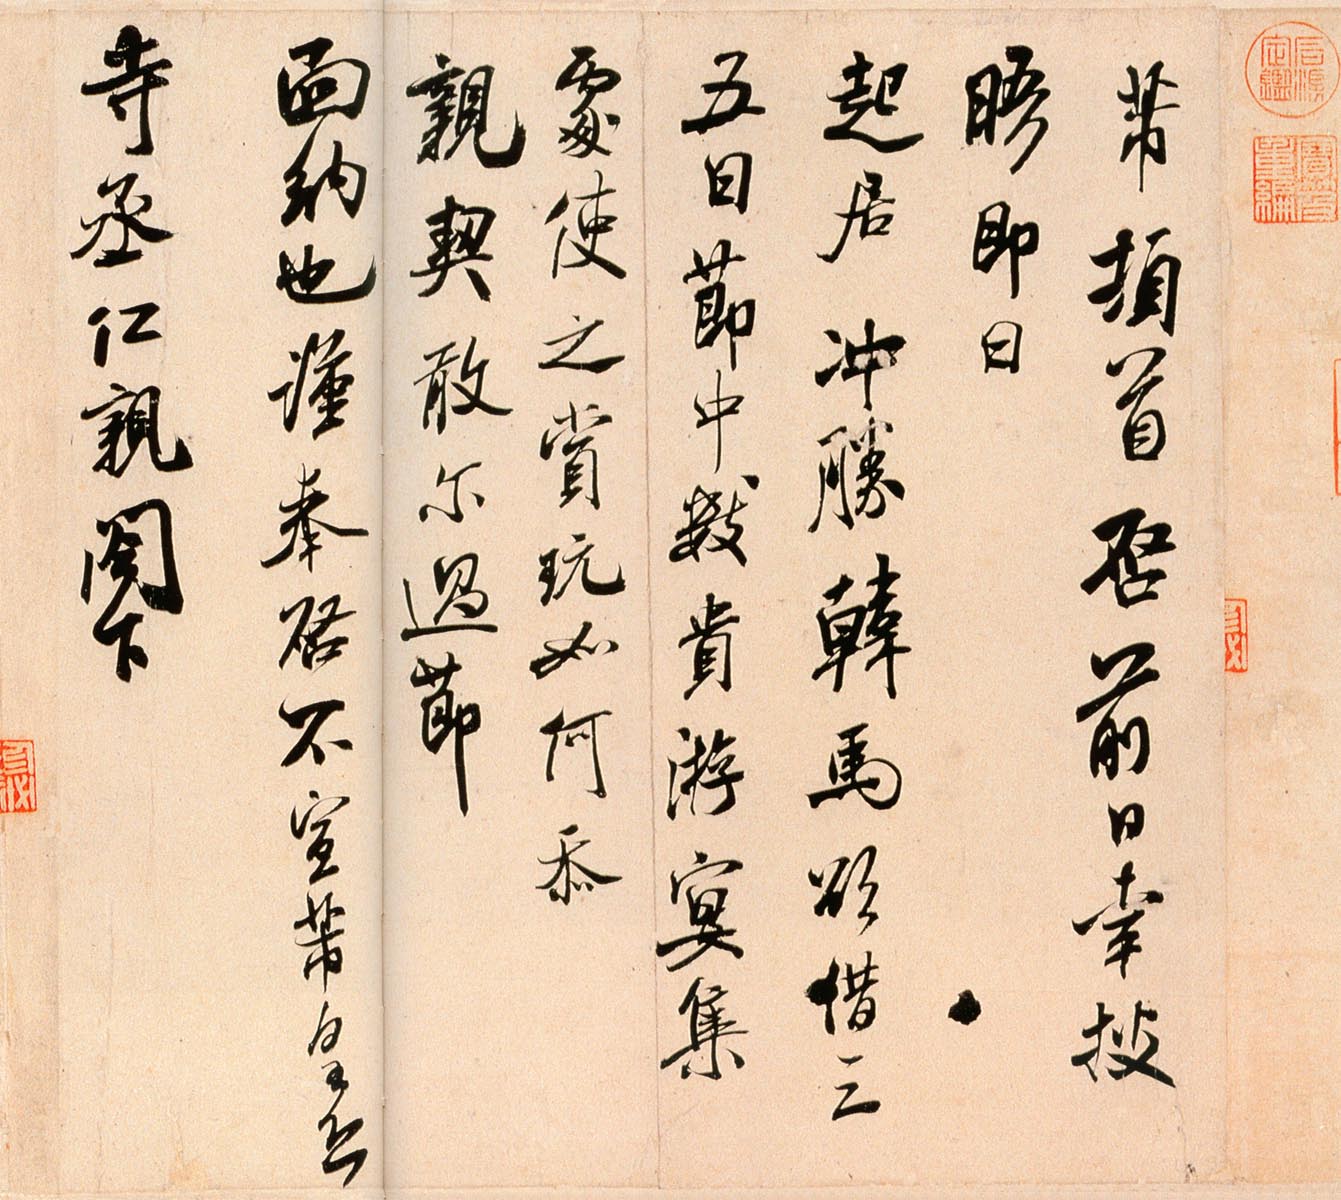 石渠定鑑
寶笈重編
芾頓首啓前日幸披
晤即日
起居冲勝韓馬欲借三
五日節中數貴游宴集
處使之賞玩如何忝
親契敢尔過節
面納也謹奉啓不宣芾皇恐
寺丞仁親閤下